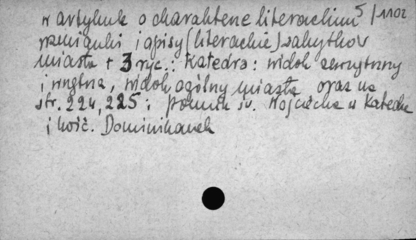 w artykule o charakterze literackim 5/1102
wzmianki i opisy (literackie) zabytków
miasta + 3 ryc.: Katedra: widok zewnętrzny
i wnętrza, widok ogólny miasta oraz na
str. 224, 225: pomnik św. Wojciecha w Katedrze
i kość. Dominikanek